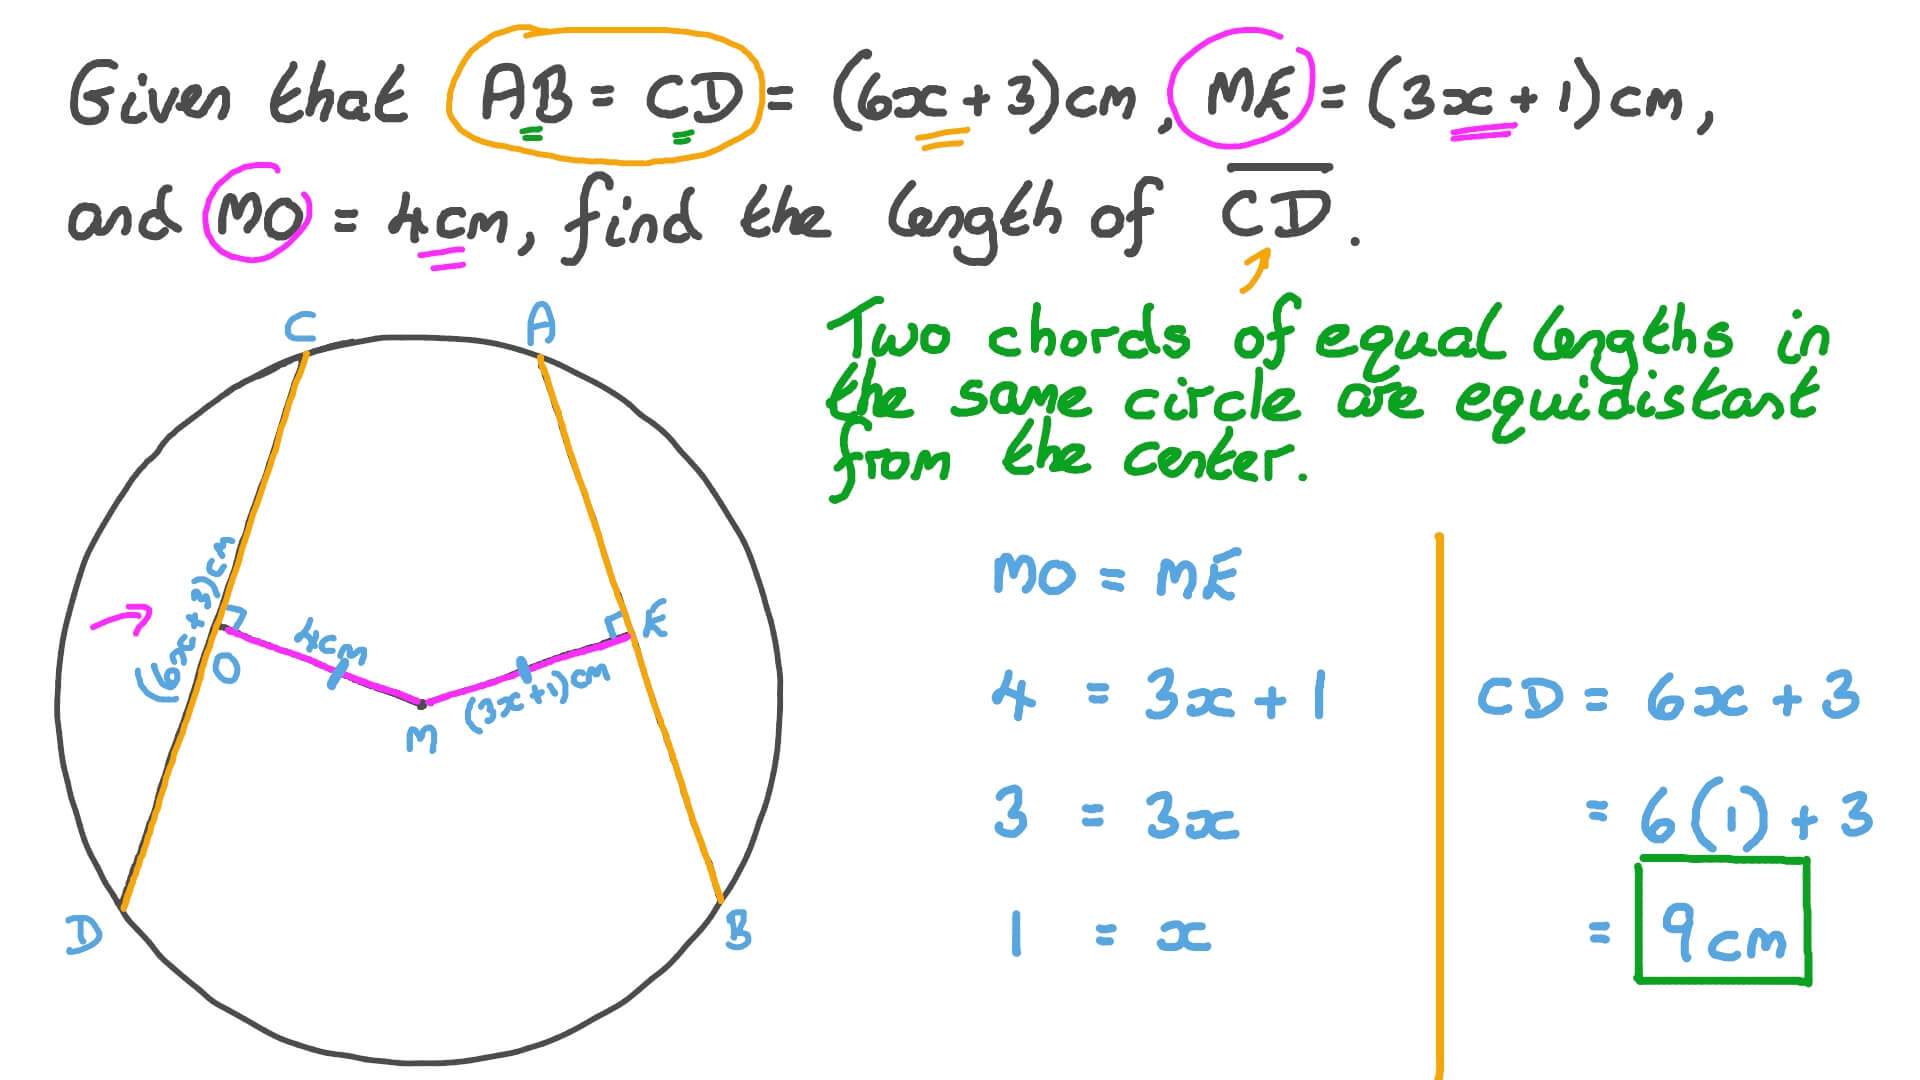 Given that AB = CD = (6x + 3)cm, ME = (3x + 1)cm,
and MO = 4cm, find the length of CD.
Two chords of equal lengths in
the same circle are equidistant
from the center.
C
A
(6x+3)cm
O
4cm
M
(3x+1)cm
E
D
B
MO = ME
4 = 3x + 1
3 = 3x
1 = x
CD = 6x + 3
= 6(1) + 3
= 9cm